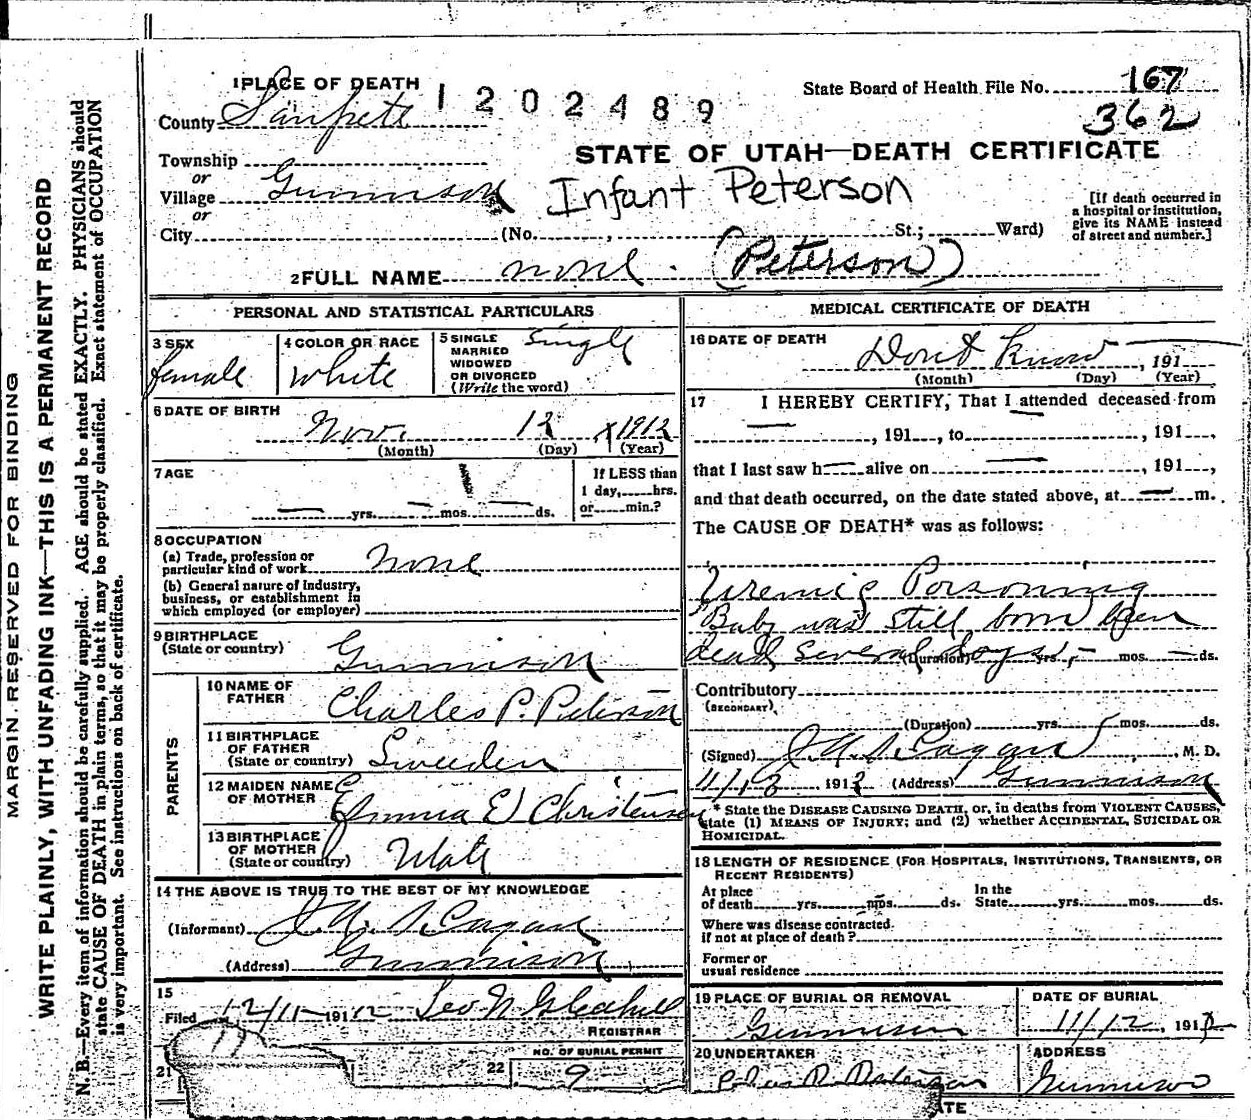 1 PLACE OF DEATH
1202489
State Board of Health File No. 167
362
County Sanpete
STATE OF UTAH—DEATH CERTIFICATE
Township
or
Village Gunnison
Infant Peterson
or
City (No. , St.; Ward)
[If death occurred in
a hospital or institution,
give its NAME instead
of street and number.]
2 FULL NAME none. (Peterson)
PERSONAL AND STATISTICAL PARTICULARS
3 SEX
female
4 COLOR OR RACE
White
5 SINGLE
MARRIED
WIDOWED
OR DIVORCED
(Write the word)
Single
6 DATE OF BIRTH
Nov. 12 1912
(Month) (Day) (Year)
7 AGE
yrs. mos. ds.
If LESS than
1 day, hrs.
or min.?
8 OCCUPATION
(a) Trade, profession or
particular kind of work None
(b) General nature of industry,
business, or establishment in
which employed (or employer)
9 BIRTHPLACE
(State or country) Gunnison
PARENTS
10 NAME OF
FATHER Charles P. Peterson
11 BIRTHPLACE
OF FATHER
(State or country) Sweeden
12 MAIDEN NAME
OF MOTHER Emma E Christensen
13 BIRTHPLACE
OF MOTHER
(State or country) Utah
14 THE ABOVE IS TRUE TO THE BEST OF MY KNOWLEDGE
(Informant)
(Address) Gunnison
15
Filed 12/11 1912 Leo N Gledhill
REGISTRAR
21
22
NO. OF BURIAL PERMIT
9
MEDICAL CERTIFICATE OF DEATH
16 DATE OF DEATH
Dont Know, 191
(Month) (Day) (Year)
17 I HEREBY CERTIFY, That I attended deceased from
, 191 , to , 191 ,
that I last saw h alive on , 191 ,
and that death occurred, on the date stated above, at m.
The CAUSE OF DEATH* was as follows:
Uremic Poisoning
Baby was still born been
dead several days
(Duration) yrs. mos. ds.
Contributory
(SECONDARY)
(Duration) yrs. mos. ds.
(Signed) , M. D.
191 (Address) Gunnison
* State the DISEASE CAUSING DEATH, or, in deaths from VIOLENT CAUSES,
state (1) MEANS OF INJURY; and (2) whether ACCIDENTAL, SUICIDAL OR
HOMICIDAL.
18 LENGTH OF RESIDENCE (FOR HOSPITALS, INSTITUTIONS, TRANSIENTS, OR
RECENT RESIDENTS)
At place
of death yrs. mos. ds.
In the
State yrs. mos. ds.
Where was disease contracted
if not at place of death?
Former or
usual residence
19 PLACE OF BURIAL OR REMOVAL
Gunnison
DATE OF BURIAL
11/12, 191
20 UNDERTAKER
Chas P. Peterson
ADDRESS
Gunnison
MARGIN RESERVED FOR BINDING
WRITE PLAINLY, WITH UNFADING INK—THIS IS A PERMANENT RECORD
N. B.—Every item of information should be carefully supplied. AGE should be stated EXACTLY. PHYSICIANS should
state CAUSE OF DEATH in plain terms, so that it may be properly classified. Exact statement of OCCUPATION
is very important. See instructions on back of certificate.